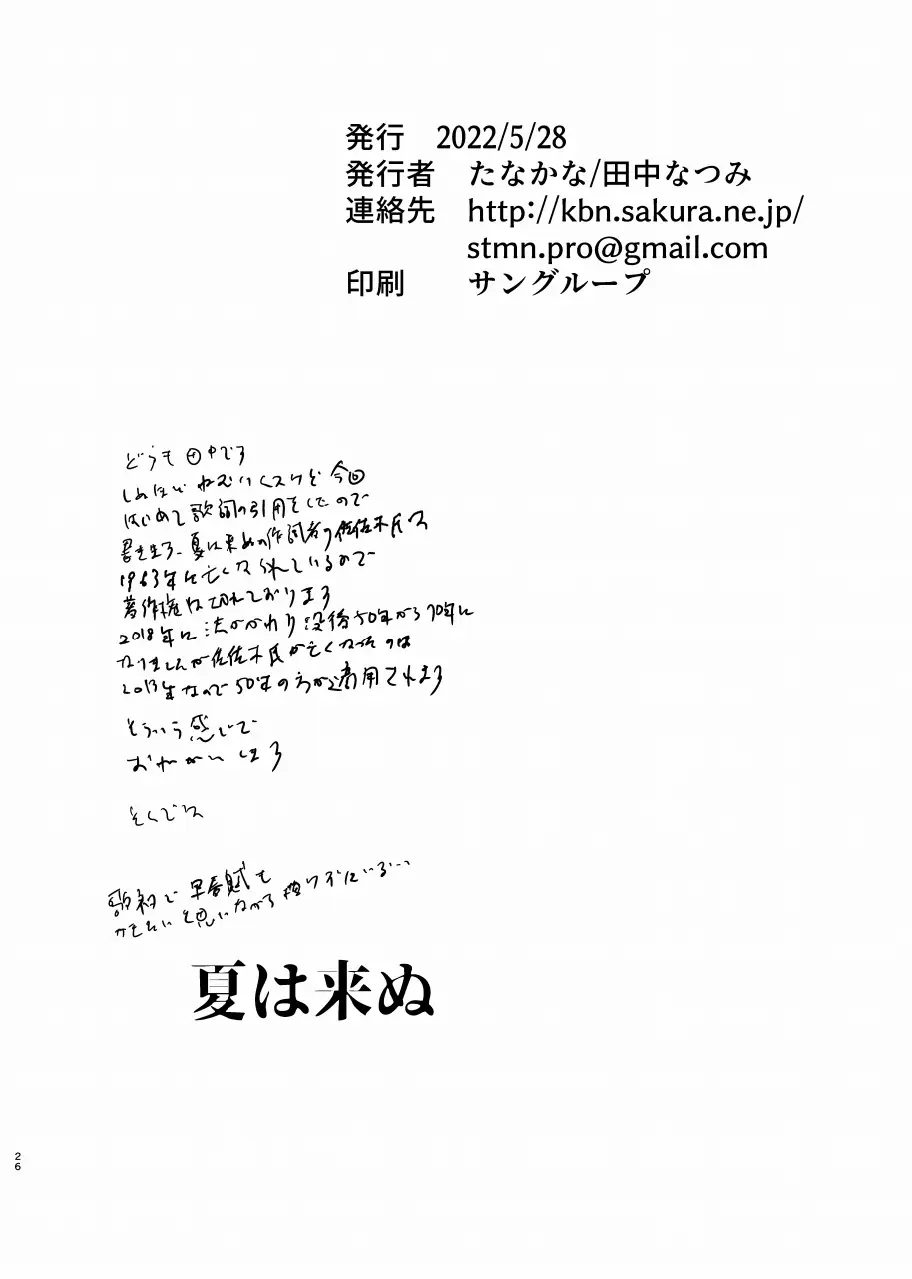 発行 2022/5/28
発行者 たなかな/田中なつみ
連絡先 http://kbn.sakura.ne.jp/
stmn.pro@gmail.com
印刷 サングループ
どうも田中です
しぬほどねむいですけど今回
はじめて歌詞の引用をしたので
書きます、夏は来ぬの作詞者の佐佐木氏は
1963年に亡くなられているので
著作権は切れております
2018年に法がかわり没後50年から70年に
なりましたが佐佐木氏が亡くなったのは
2013年なので50年の方が適用されます
そういう感じで
おねがいします
そくでは
歌詞で早春賦も
かきたいと思いながら描けずにいる…
夏は来ぬ
26